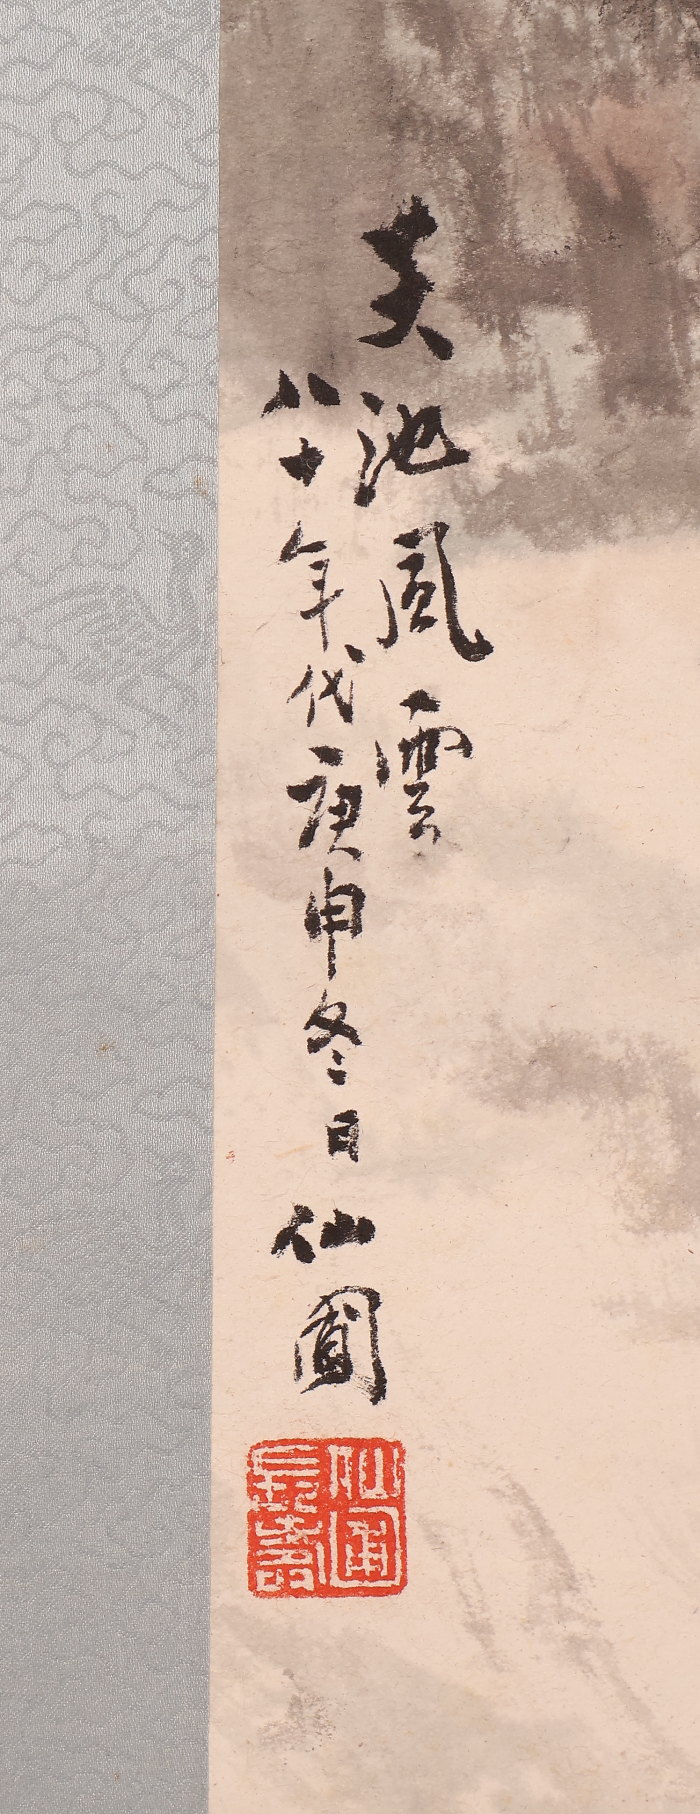 天池風雲
八十年代庚申冬日仙圃
仙圃
長壽